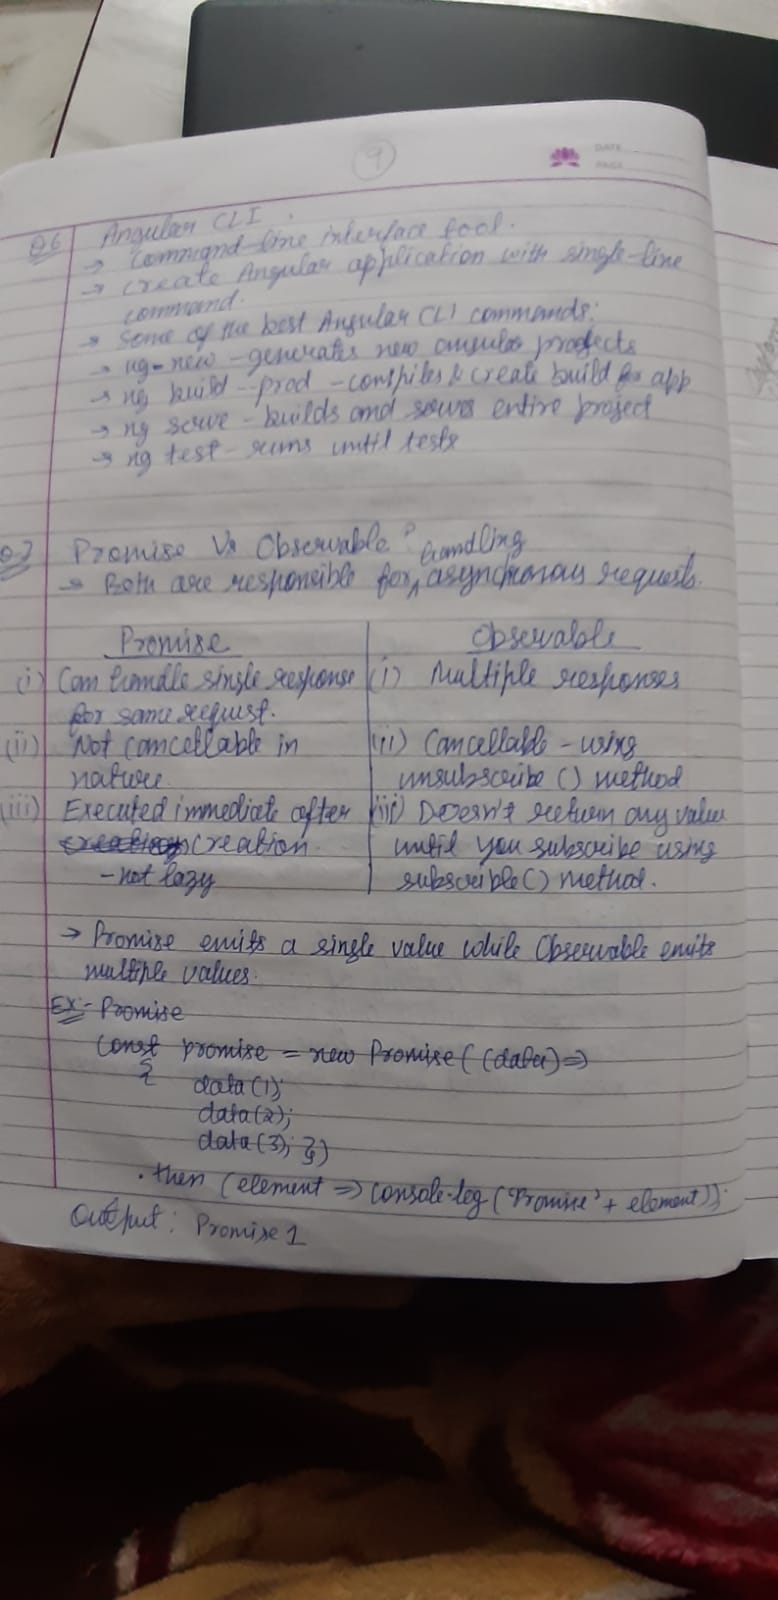 9
DATE
PAGE
Q6 Angular CLI.
→ Command line interface tool.
→ create Angular application with single-line
command.
→ Some of the best Angular CLI commands:
→ ng-new - generates new angular projects
→ ng build --prod - compiles & create build for app
→ ng serve - builds and serves entire project
→ ng test - runs until tests
Q-7 Promise Vs Observable?
→ Both are responsible for handling asynchronous requests.
Promise
(i) Can handle single response
for same request.
(ii) Not cancellable in
nature
(iii) Executed immediate after
creation
- not lazy
Observable
(i) Multiple responses
(ii) Cancellable - using
unsubscribe () method
(iii) Doesn't return any value
until you subscribe using
subscrible() method.
→ Promise emits a single value while Observable emits
multiple values.
Ex:- Promise
Const promise = new Promise ((data) =>
{ data(1);
data(2);
data(3); })
.then (element => console.log ('Promise' + element));
Output: Promise 1